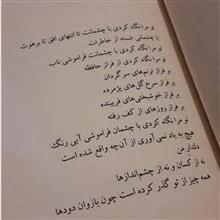 تو مرا نگاه کردی با چشمانت تا انتهای افق تا برهوت
با چشمانی شسته از خاطرات
تو مرا نگاه کردی با چشمانت فراموشی ناب
تو مرا نگاه کردی از فراز حافظه
بر فراز ترنم‌های سرگردان
بر فراز سرخ گل‌های پژمرده
بر فراز خوشبختی‌های فریبنده
بر فراز روزهای از کف رفته
تو مرا نگاه کردی با چشمان فراموشی آبی رنگ
هیچ به یاد نمی‌آوری از آن‌چه واقع شده است
دلدار من
نه از کسان و نه از چشم‌اندازها
همه چیز از تو گذر کرده است چون بازوان دودها